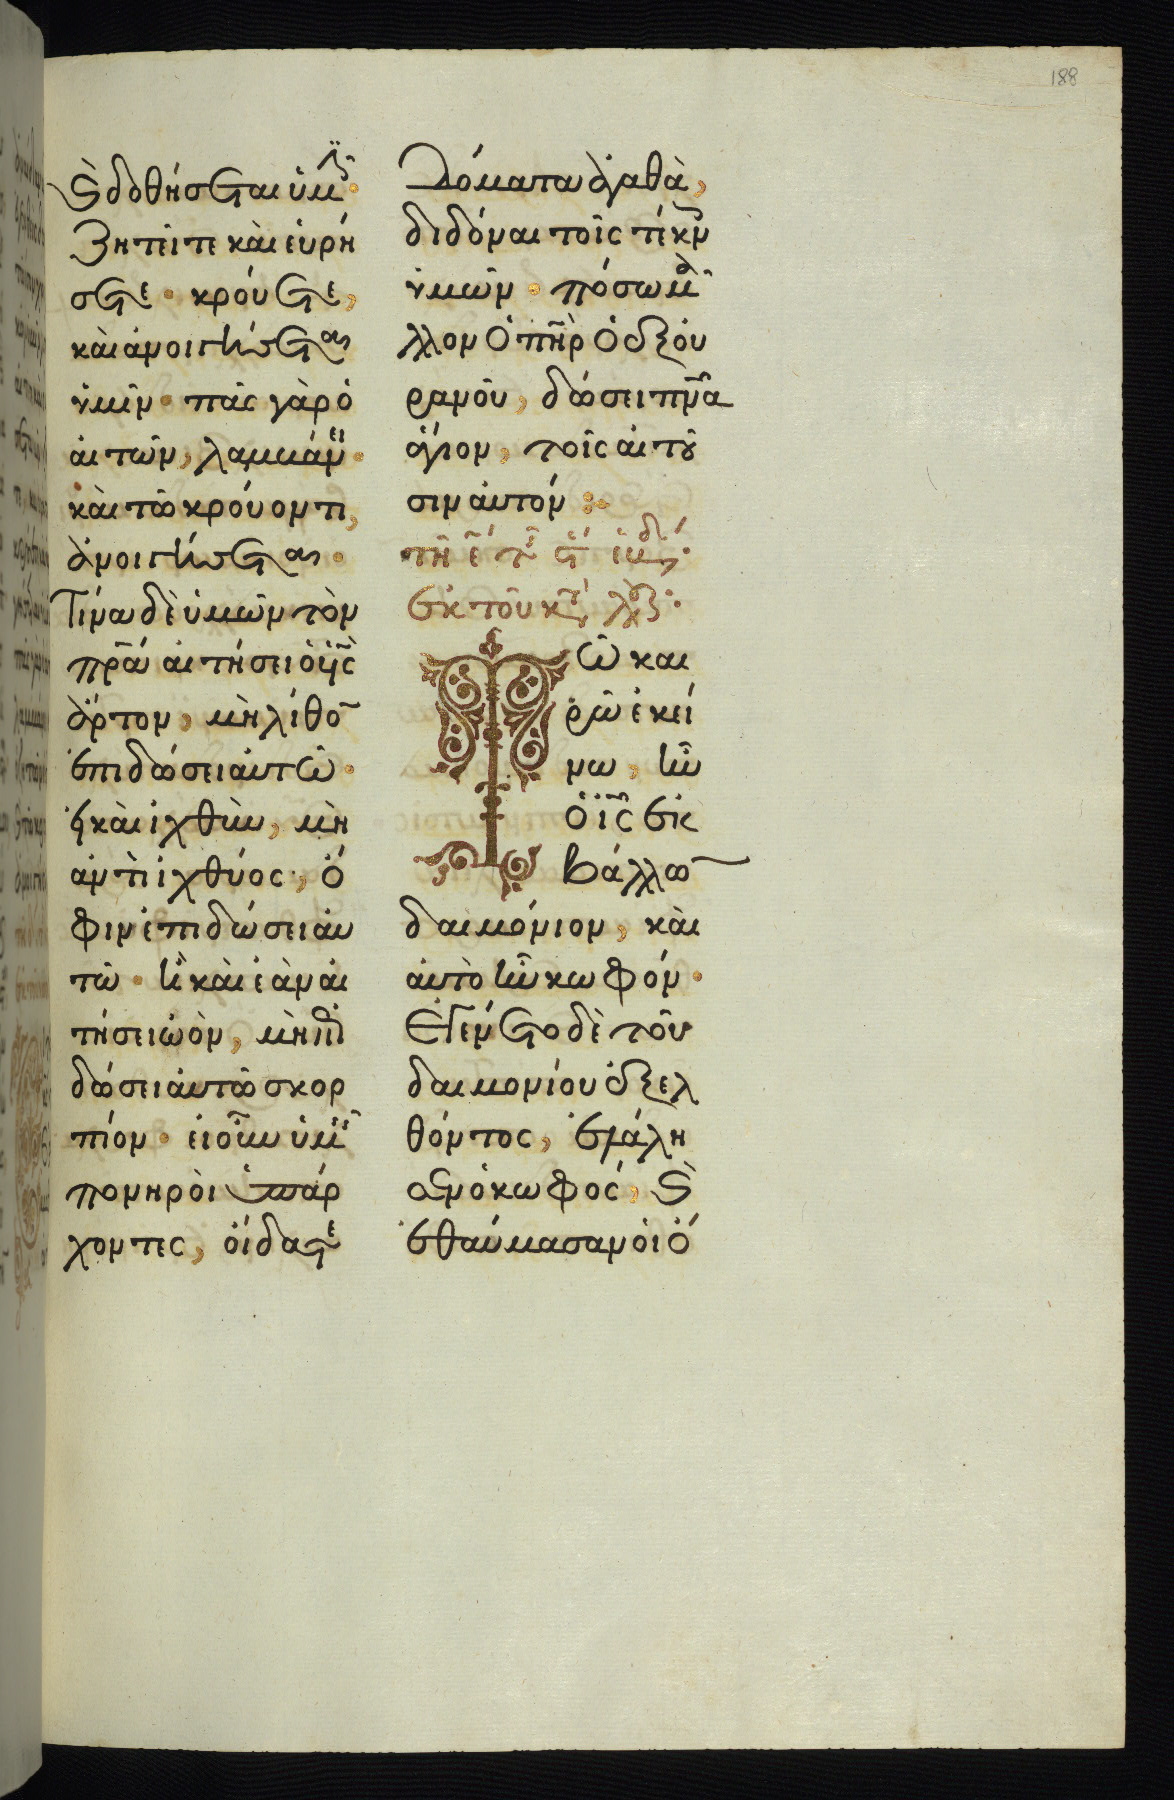 188
καὶ δοθήσεται ὑμῖν·
Ζητεῖτε καὶ εὑρή
σετε· κρούετε,
καὶ ἀνοιγήσεται
ὑμῖν· πᾶς γὰρ ὁ
αἰτῶν, λαμβάνει·
καὶ τῶ κρούοντι,
ἀνοιγήσεται·
Τίνα δὲ ὑμῶν τὸν
πρα αἰτήσει ὁ υἱς
ἄρτον, μὴ λίθον
ἐπιδώσει αὐτῶ·
ἢ καὶ ἰχθὺν, μὴ
ἀντὶ ἰχθύος, ὄ
φιν ἐπιδώσει αὐ
τῶ· ἢ καὶ ἐὰν αἰ
τήσει ὠὸν, μὴ ἐπι
δώσει αὐτῶ σκορ
πίον· εἰ οὖν ὑμεῖς
πονηροὶ ὑπάρ
χοντες, οἴδατε
Δόματα ἀγαθὰ,
διδόναι τοῖς τέκνοις
ὑμῶν· πόσω μᾶ
λλον ὁ πηρ ὁ ἐξ οὐ
ρανοῦ, δώσει πνα
ἅγιον, τοῖς αἰτοῦ
σιν αὐτόν:
τῆ ς τῆς γ ἑβδ·
Ἐκ τοῦ κατὰ λουκ·
Τῶ και
ρῶ ἐκεί
νω, ἦν
ὁ ις ἐκ
βάλλων
δαιμόνιον, καὶ
αὐτὸ ἦν κωφόν·
Ἐγένετο δὲ τοῦ
δαιμονίου ἐξελ
θόντος, ἐλάλη
σεν ὁ κωφός, καὶ
ἐθαύμασαν οἱ ὄ